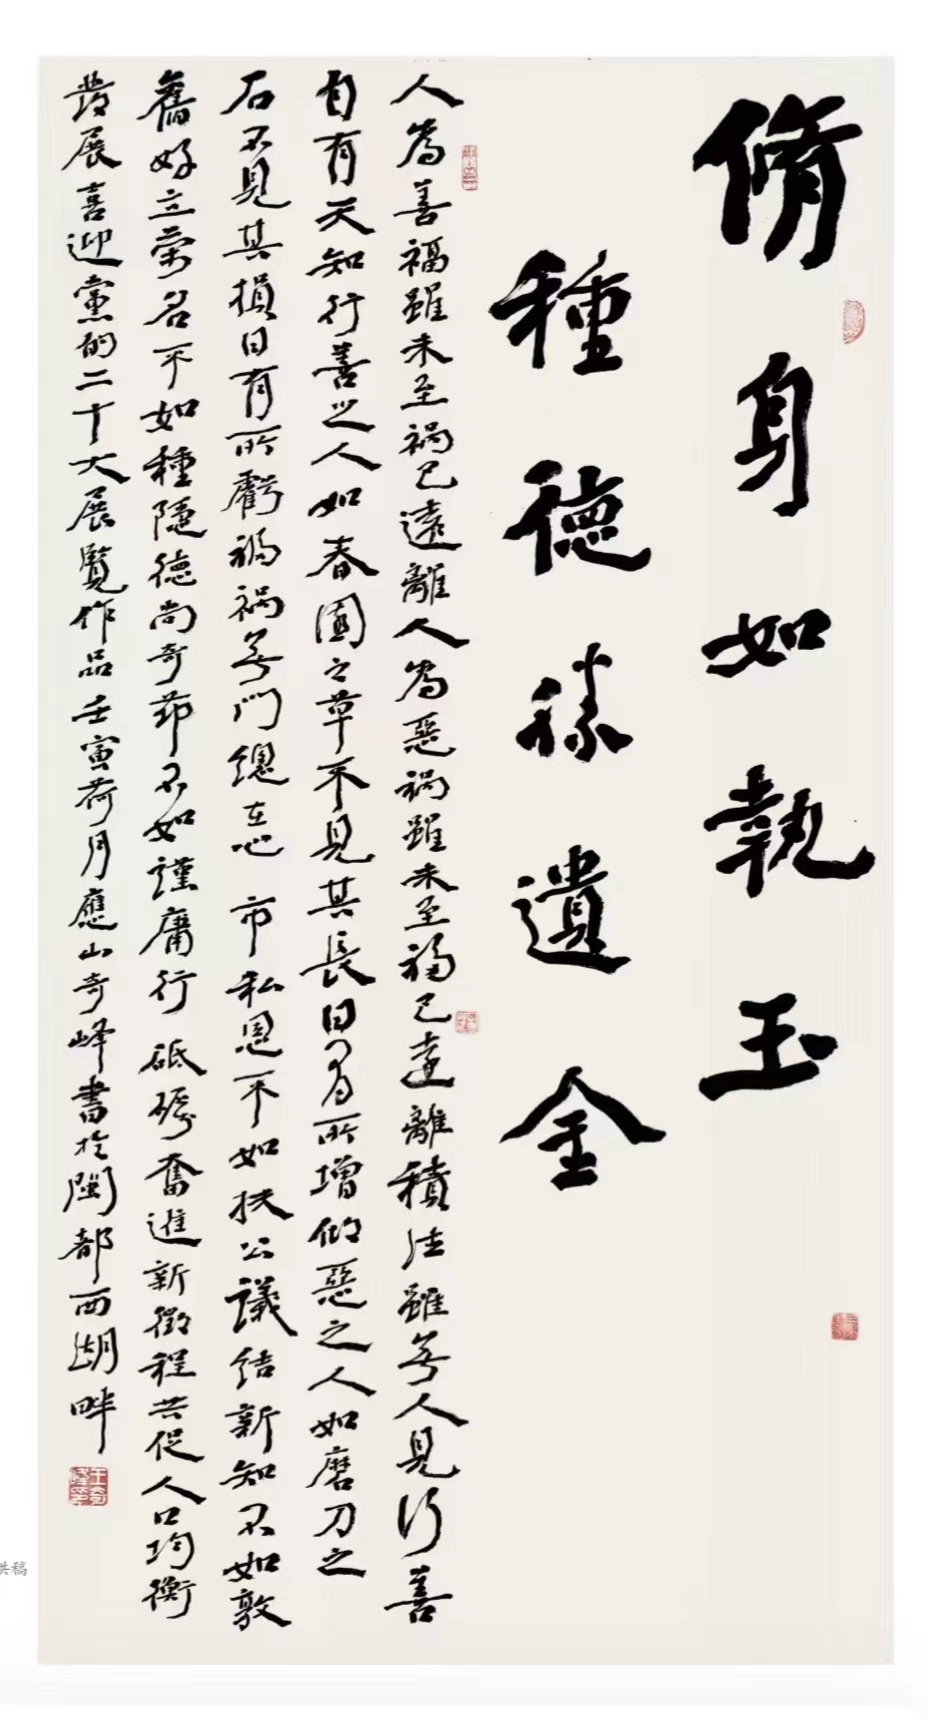 脩身如執玉
種德勝遺金
人為善福雖未至禍已遠離人為惡禍雖未至福已遠離積德雖無人見行善
自有天知行善之人如春園之草不見其長日有所增做惡之人如磨刀之
石不見其損日有所虧福禍無門總在心 市私恩不如扶公議結新知不如敦
舊好立榮名不如種隱德尚奇節不如謹庸行 砥礪奮進新徵程共促人口均衡
發展喜迎黨的二十大展覽作品壬寅荷月應山奇峰書於閩都西湖畔
王奇峰印
供稿